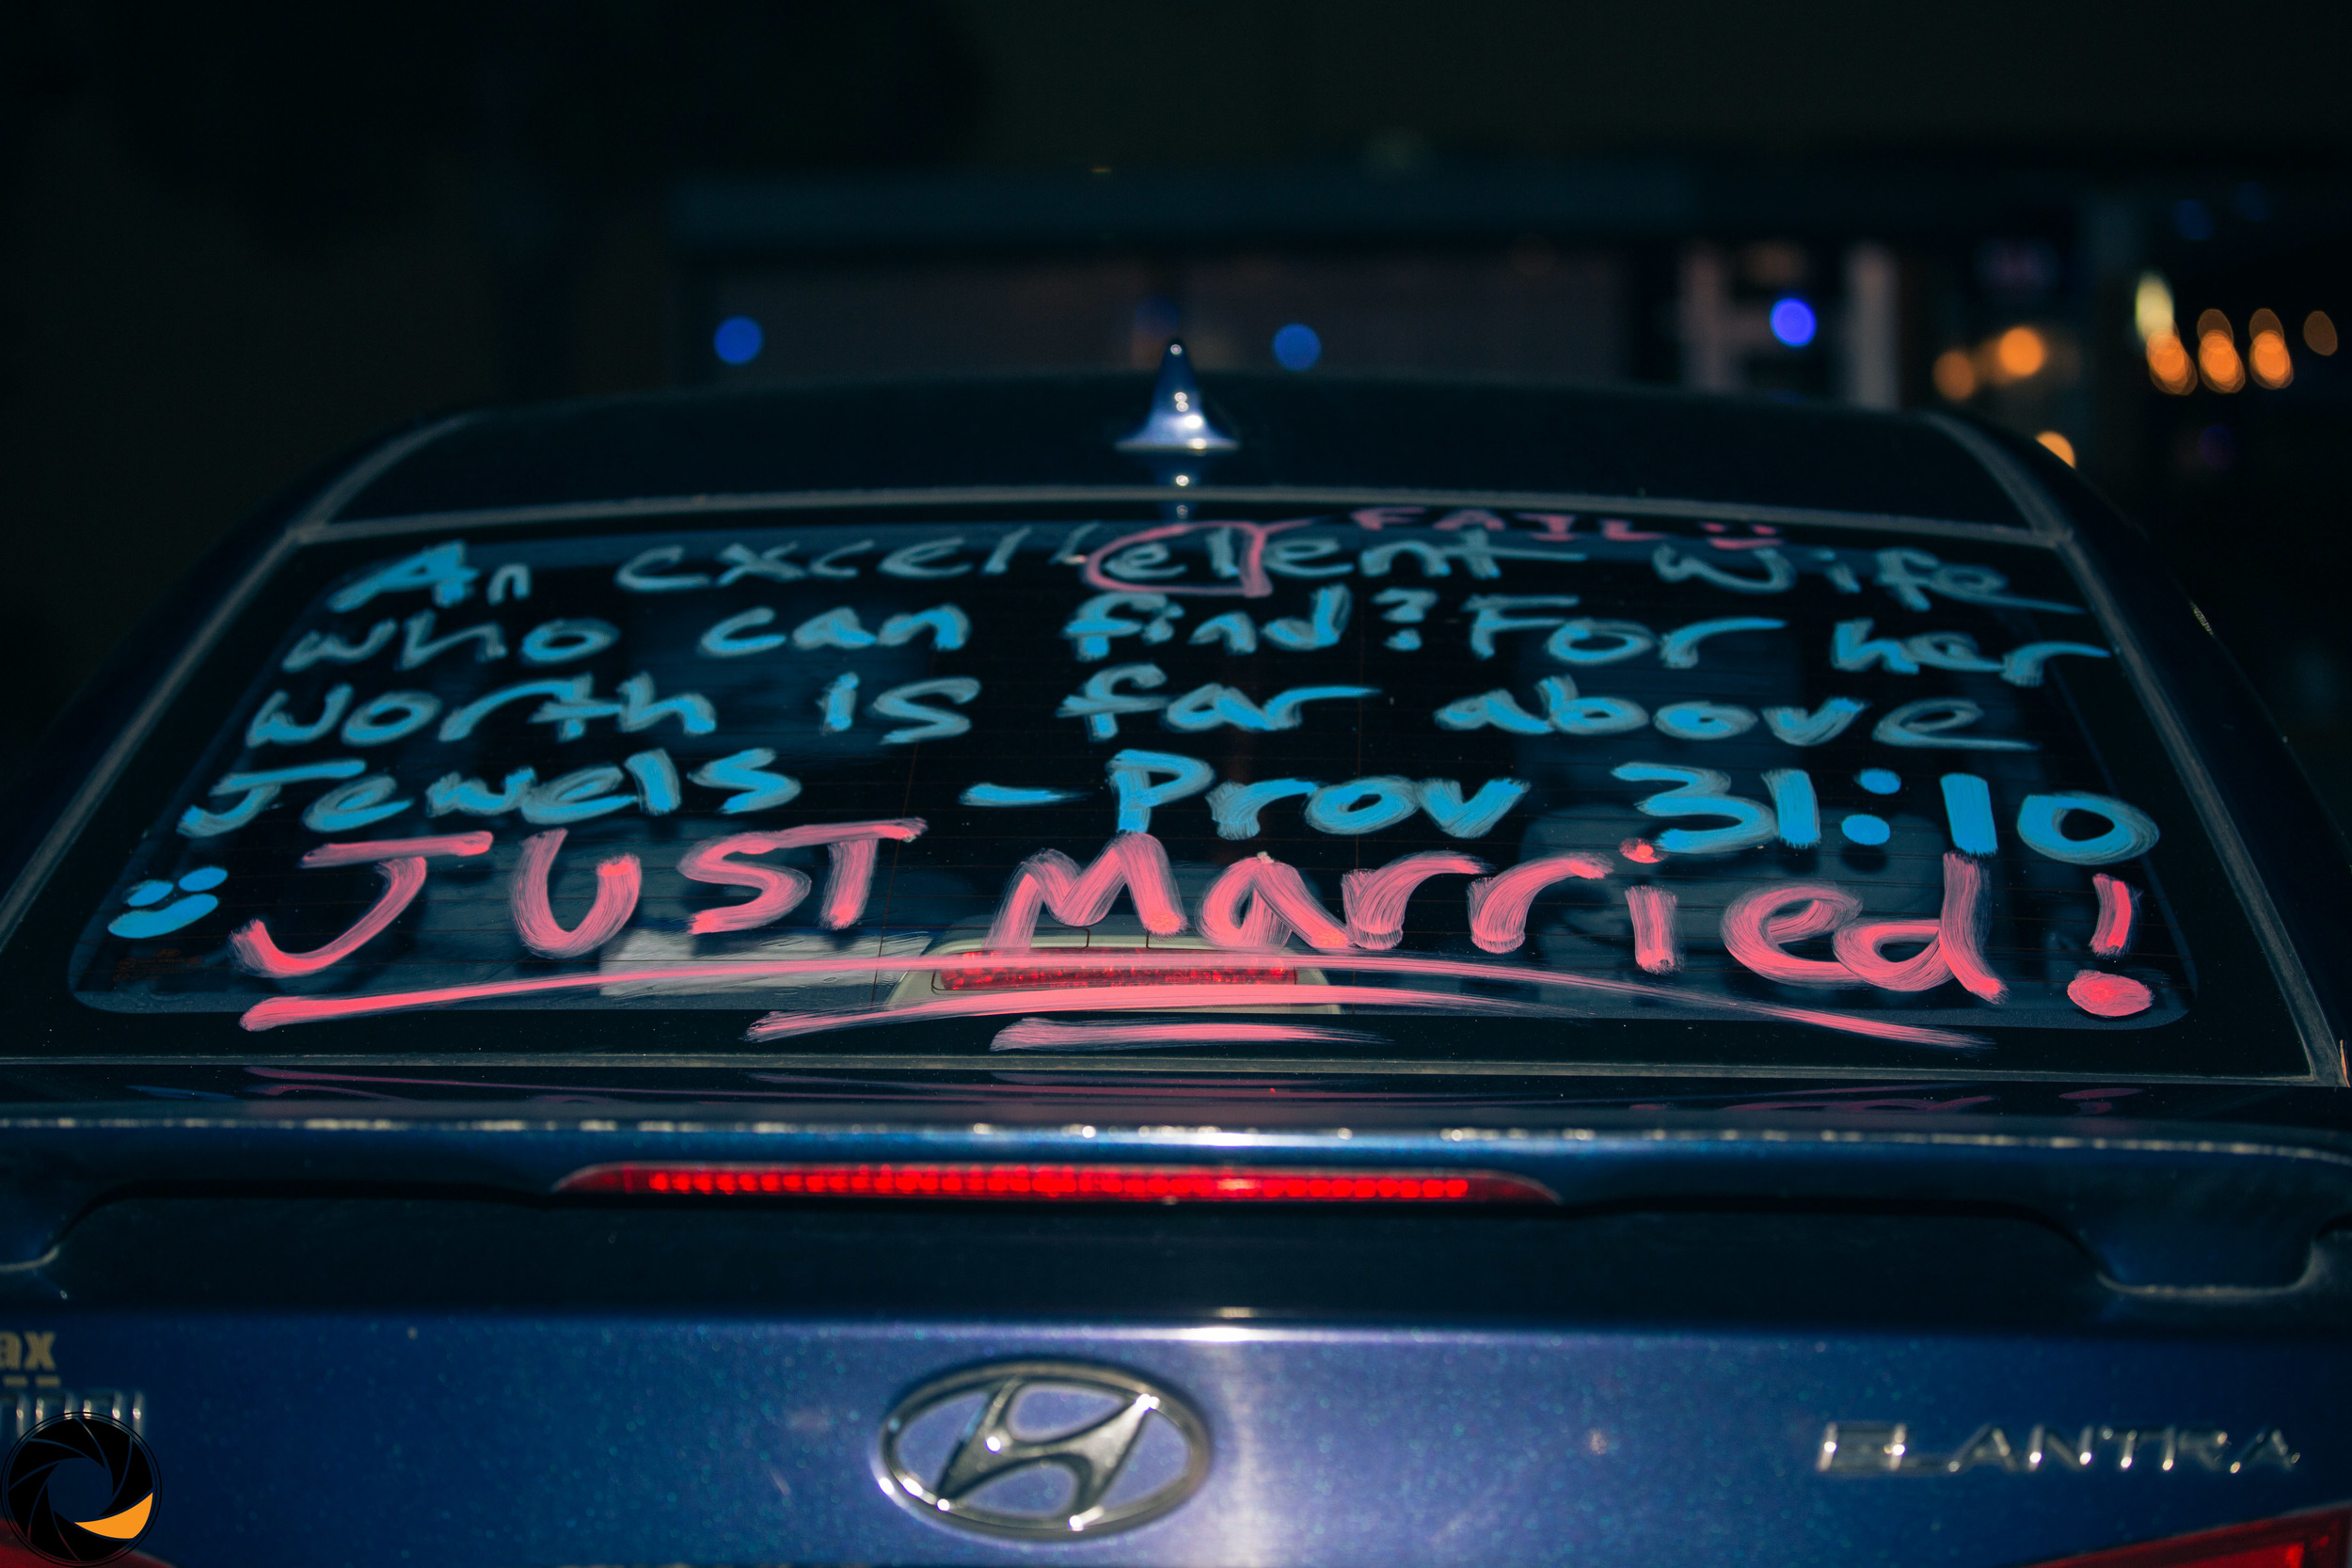 FAIL
An excellelent wife
who can find? For her
worth is far above
Jewels - Prov 31:10
JUST Married!
ax
ELANTRA